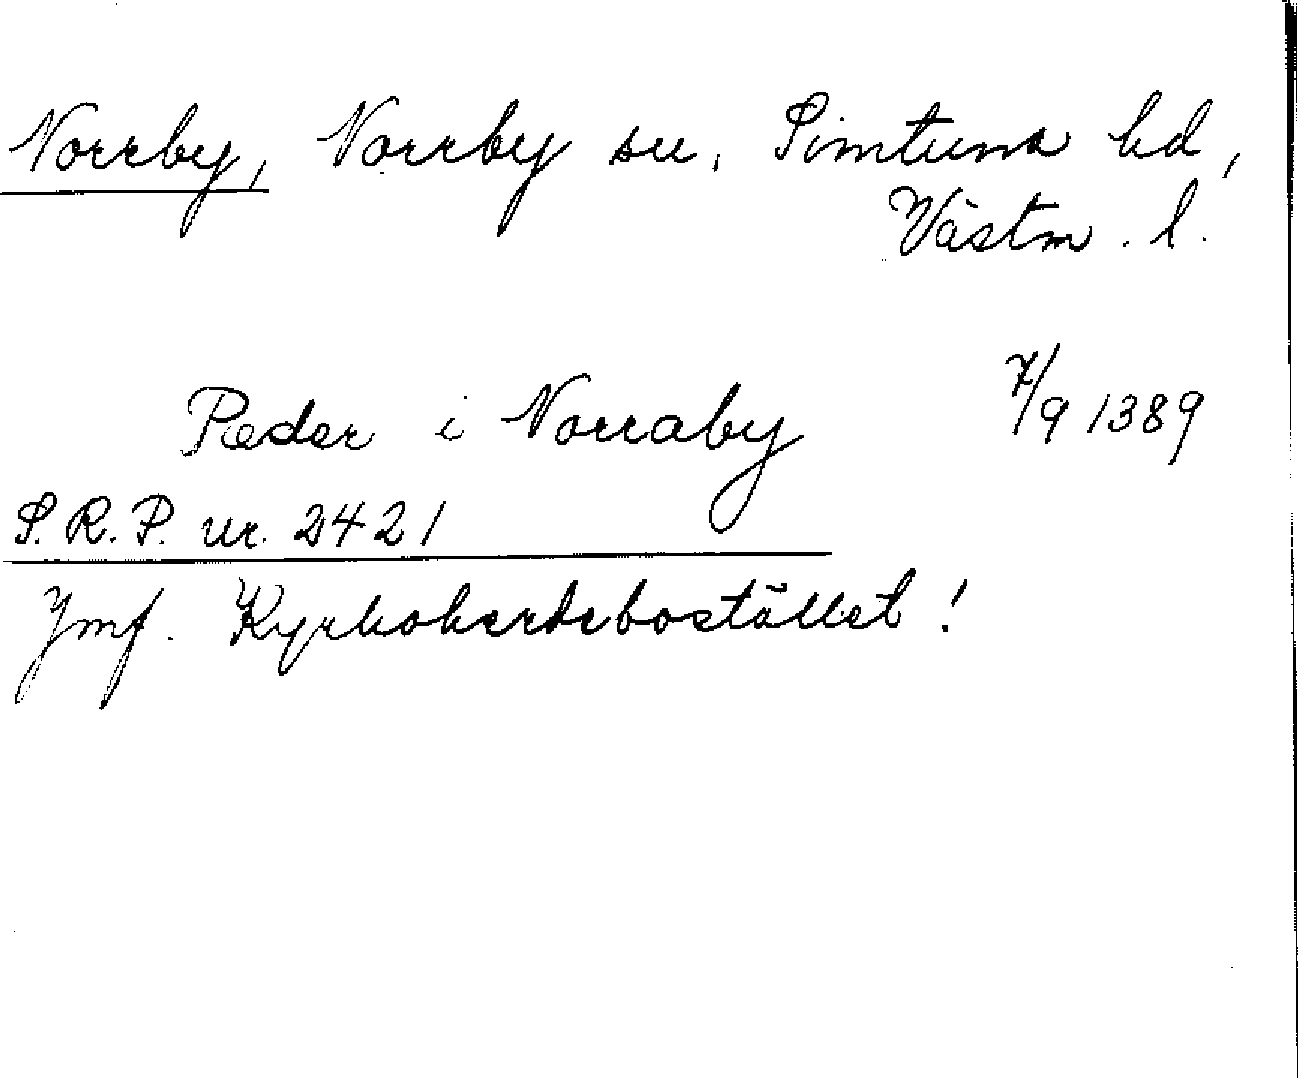 Norrby, Norrby sn, Simtuna hd,
Västm. l.
Pæder i Norraby 7/9 1389
S.R.P. nr. 2421
Jmf. Kyrkoherdebostället!